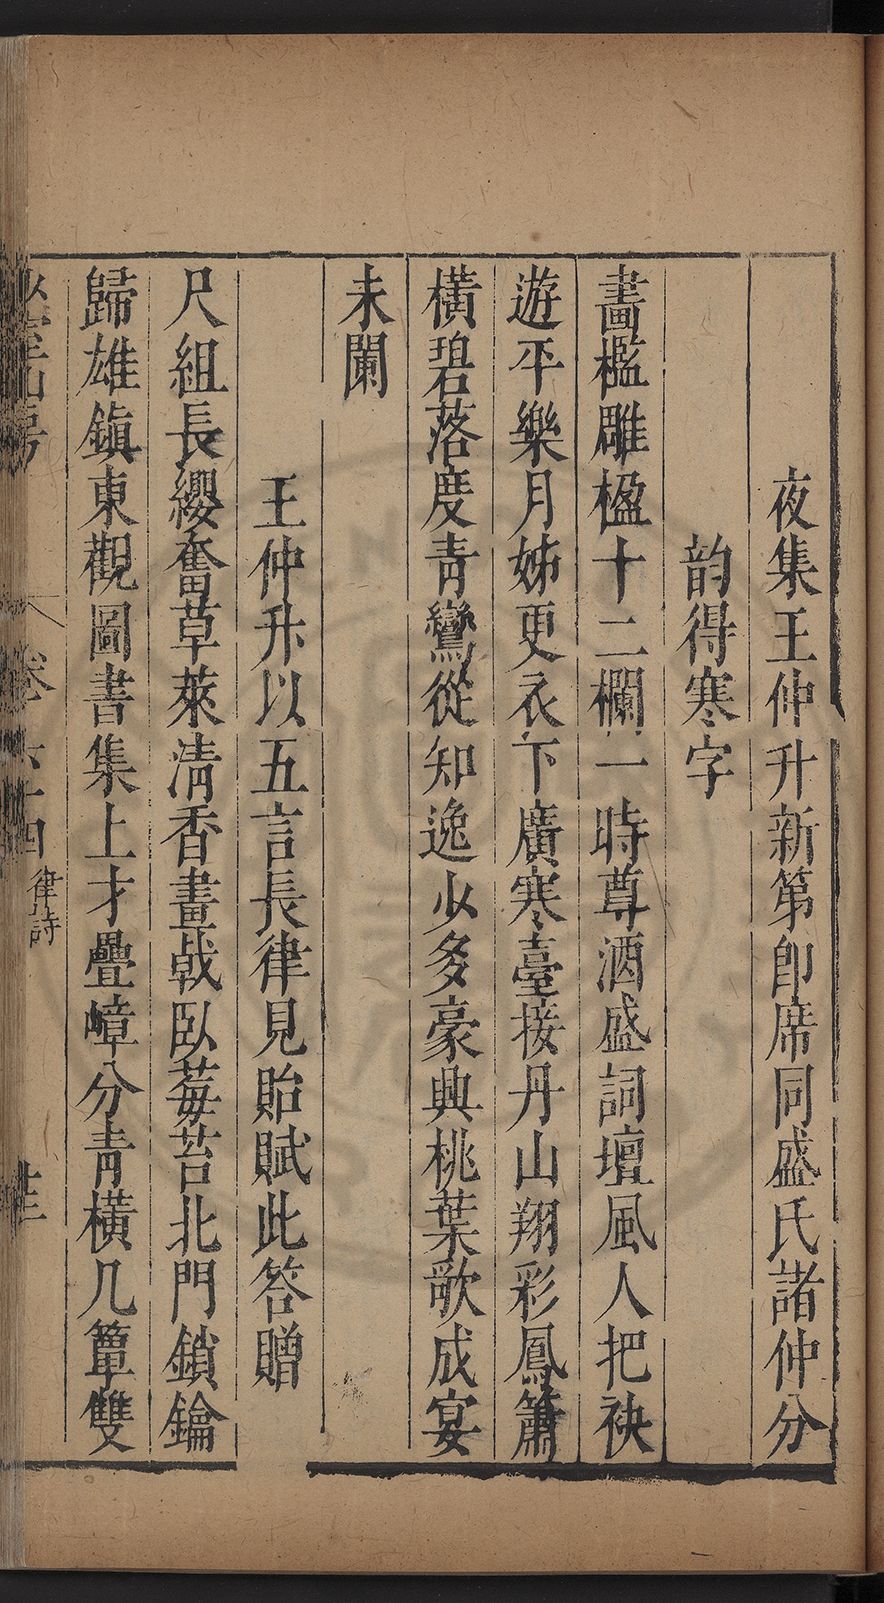 夜集王仲升新第即席同盛氏諸仲分
韵得寒字
畫檻雕楹十二欄一時尊酒盛詞壇風人把袂
遊平樂月姊更衣下廣寒臺接丹山翔彩鳳簫
橫碧落度青鸞從知逸少多豪興桃葉歌成宴
未闌
王仲升以五言長律見貽賦此答贈
尺組長纓奮草萊淸香畫戟臥莓苔北門鎖鑰
歸雄鎮東觀圖書集上才疊嶂分靑橫几簟雙
卷六十四
律詩